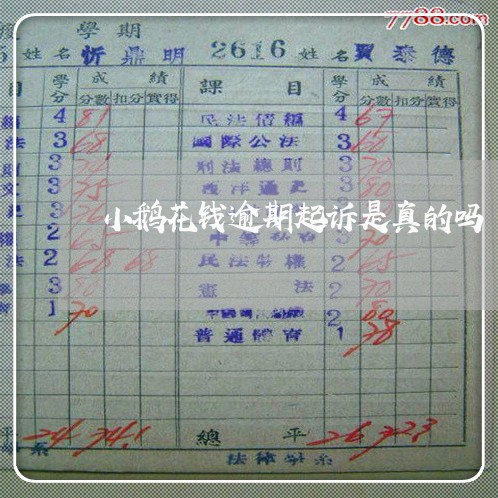 7788.com
學期
姓名 忻鼎明 2616 姓名 賈泰德
目 學分 成績 課目 學分 成績
分數 扣分 實得 分數 扣分 實得
4 81 民法債編 4 67
法 3 68 國際公法 3 60
3 刑法總則 3 70
3 75 西洋通史 3 80
3
小鹅花钱逾期起诉是真的吗
2 65 70
法 2 68 68 民法物權 2 65
3 80 憲法 2 70
1 70 2 80
普通體育 1 78
平 24 74.1 總平 26 72.3
系 法律學系